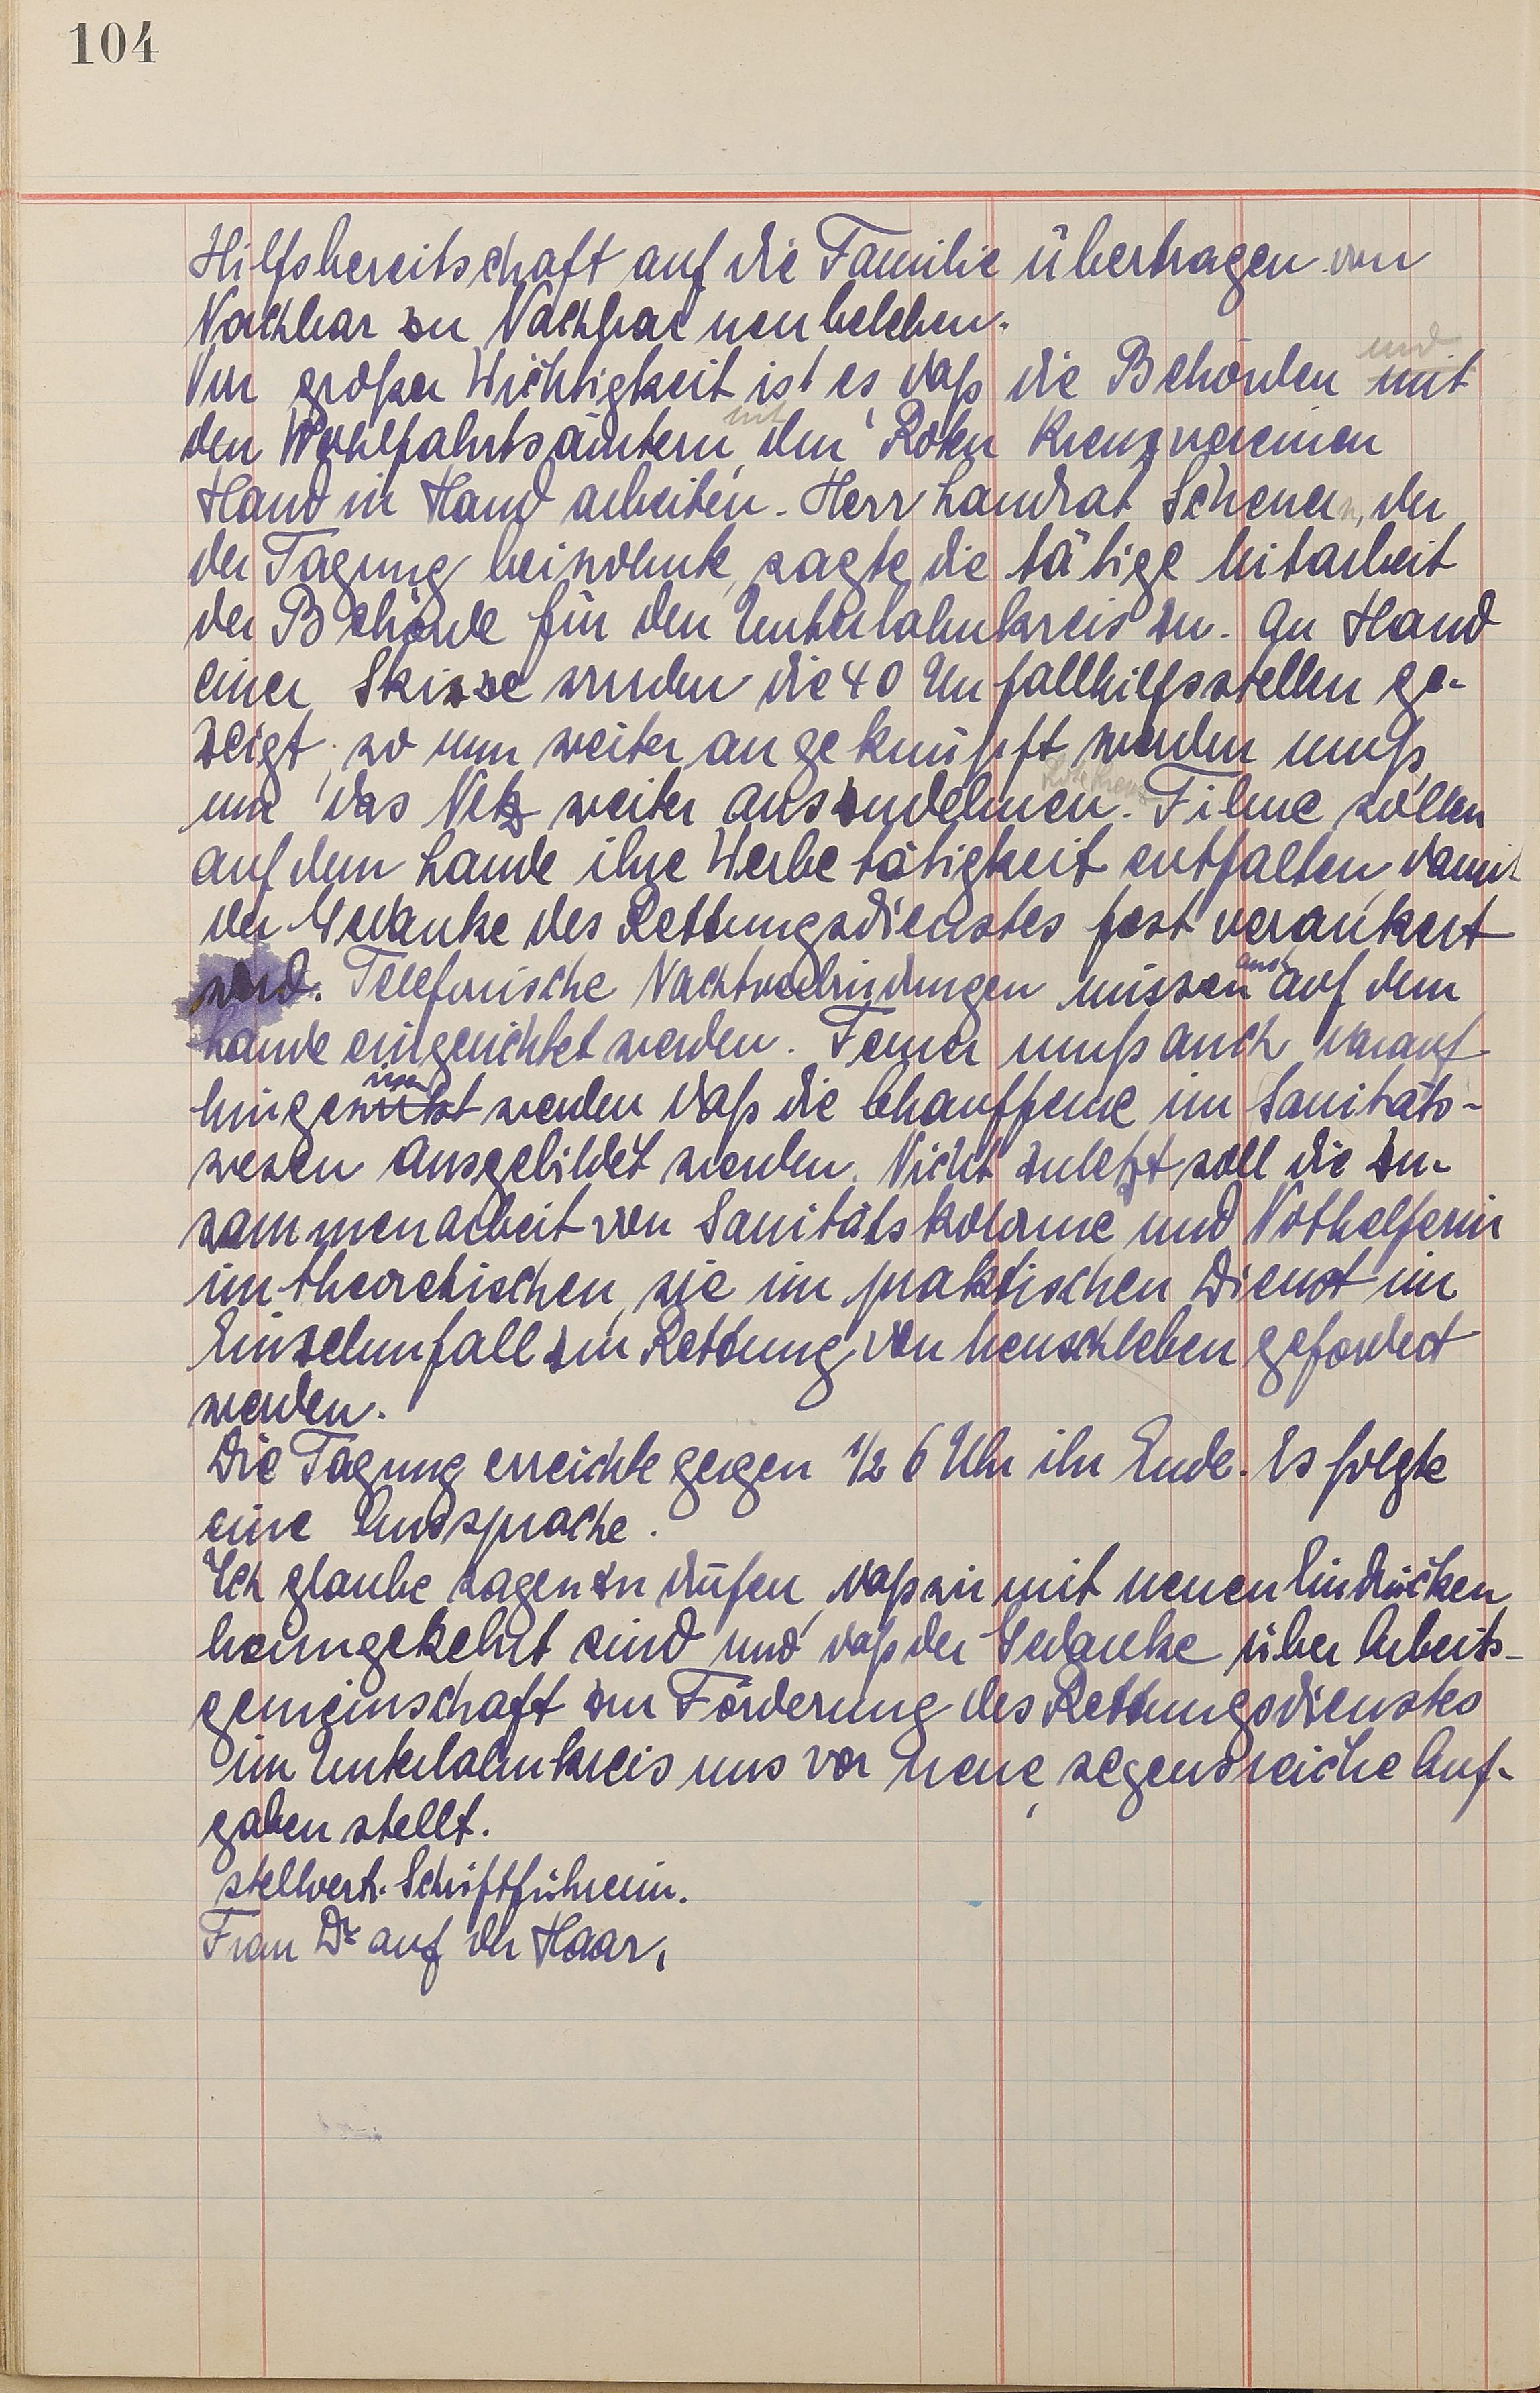 104
Hilfsbereitschaft auf die Familie übertragen von
Nachbar zu Nachbar neu beleben.
Von großer Wichtigkeit ist es, daß die Behörden und mit
den Wohlfahrtsämtern, mit den Roten Kreuzvereinen
Hand in Hand arbeiten. Herr Landrat Scheuern, der
der Tagung beiwohnte, sagte die tätige Mitarbeit
der Behörde für den Unterlahnkreis zu. An Hand
einer Skizze wurden die 40 Unfallhilfsstellen ge-
zeigt, wo nun weiter angeknüpft werden muß,
um das Netz weiter auszudehnen. Rote Kreuz Filme sollen
auf dem Lande ihre Werbetätigkeit entfalten, damit
der Gedanke des Rettungsdienstes fest verankert
wird. Telefonische Nachtverbindungen müssen auch auf dem
Lande eingerichtet werden. Ferner muß auch darauf
hingewiesen werden, daß die Chauffeure im Sanitäts-
wesen ausgebildet werden. Nicht zuletzt soll die Zu-
sammenarbeit von Sanitätskolonne und Nothelferin
im theoretischen, wie im praktischen Dienst im
Einzelunfall zur Rettung von Menschleben gefordert
werden.
Die Tagung erreichte gegen 1/2 6 Uhr ihr Ende. Es folgte
eine Aussprache.
Ich glaube sagen zu dürfen, daß wir mit neuen Eindrücken
heimgekehrt sind und daß der Gedanke über Arbeits-
gemeinschaft zur Förderung des Rettungsdienstes
im Unterlahnkreis uns vor neue, segensreiche Auf-
gaben stellt.
stellvertr. Schriftführerin.
Frau Dr. auf der Haar.